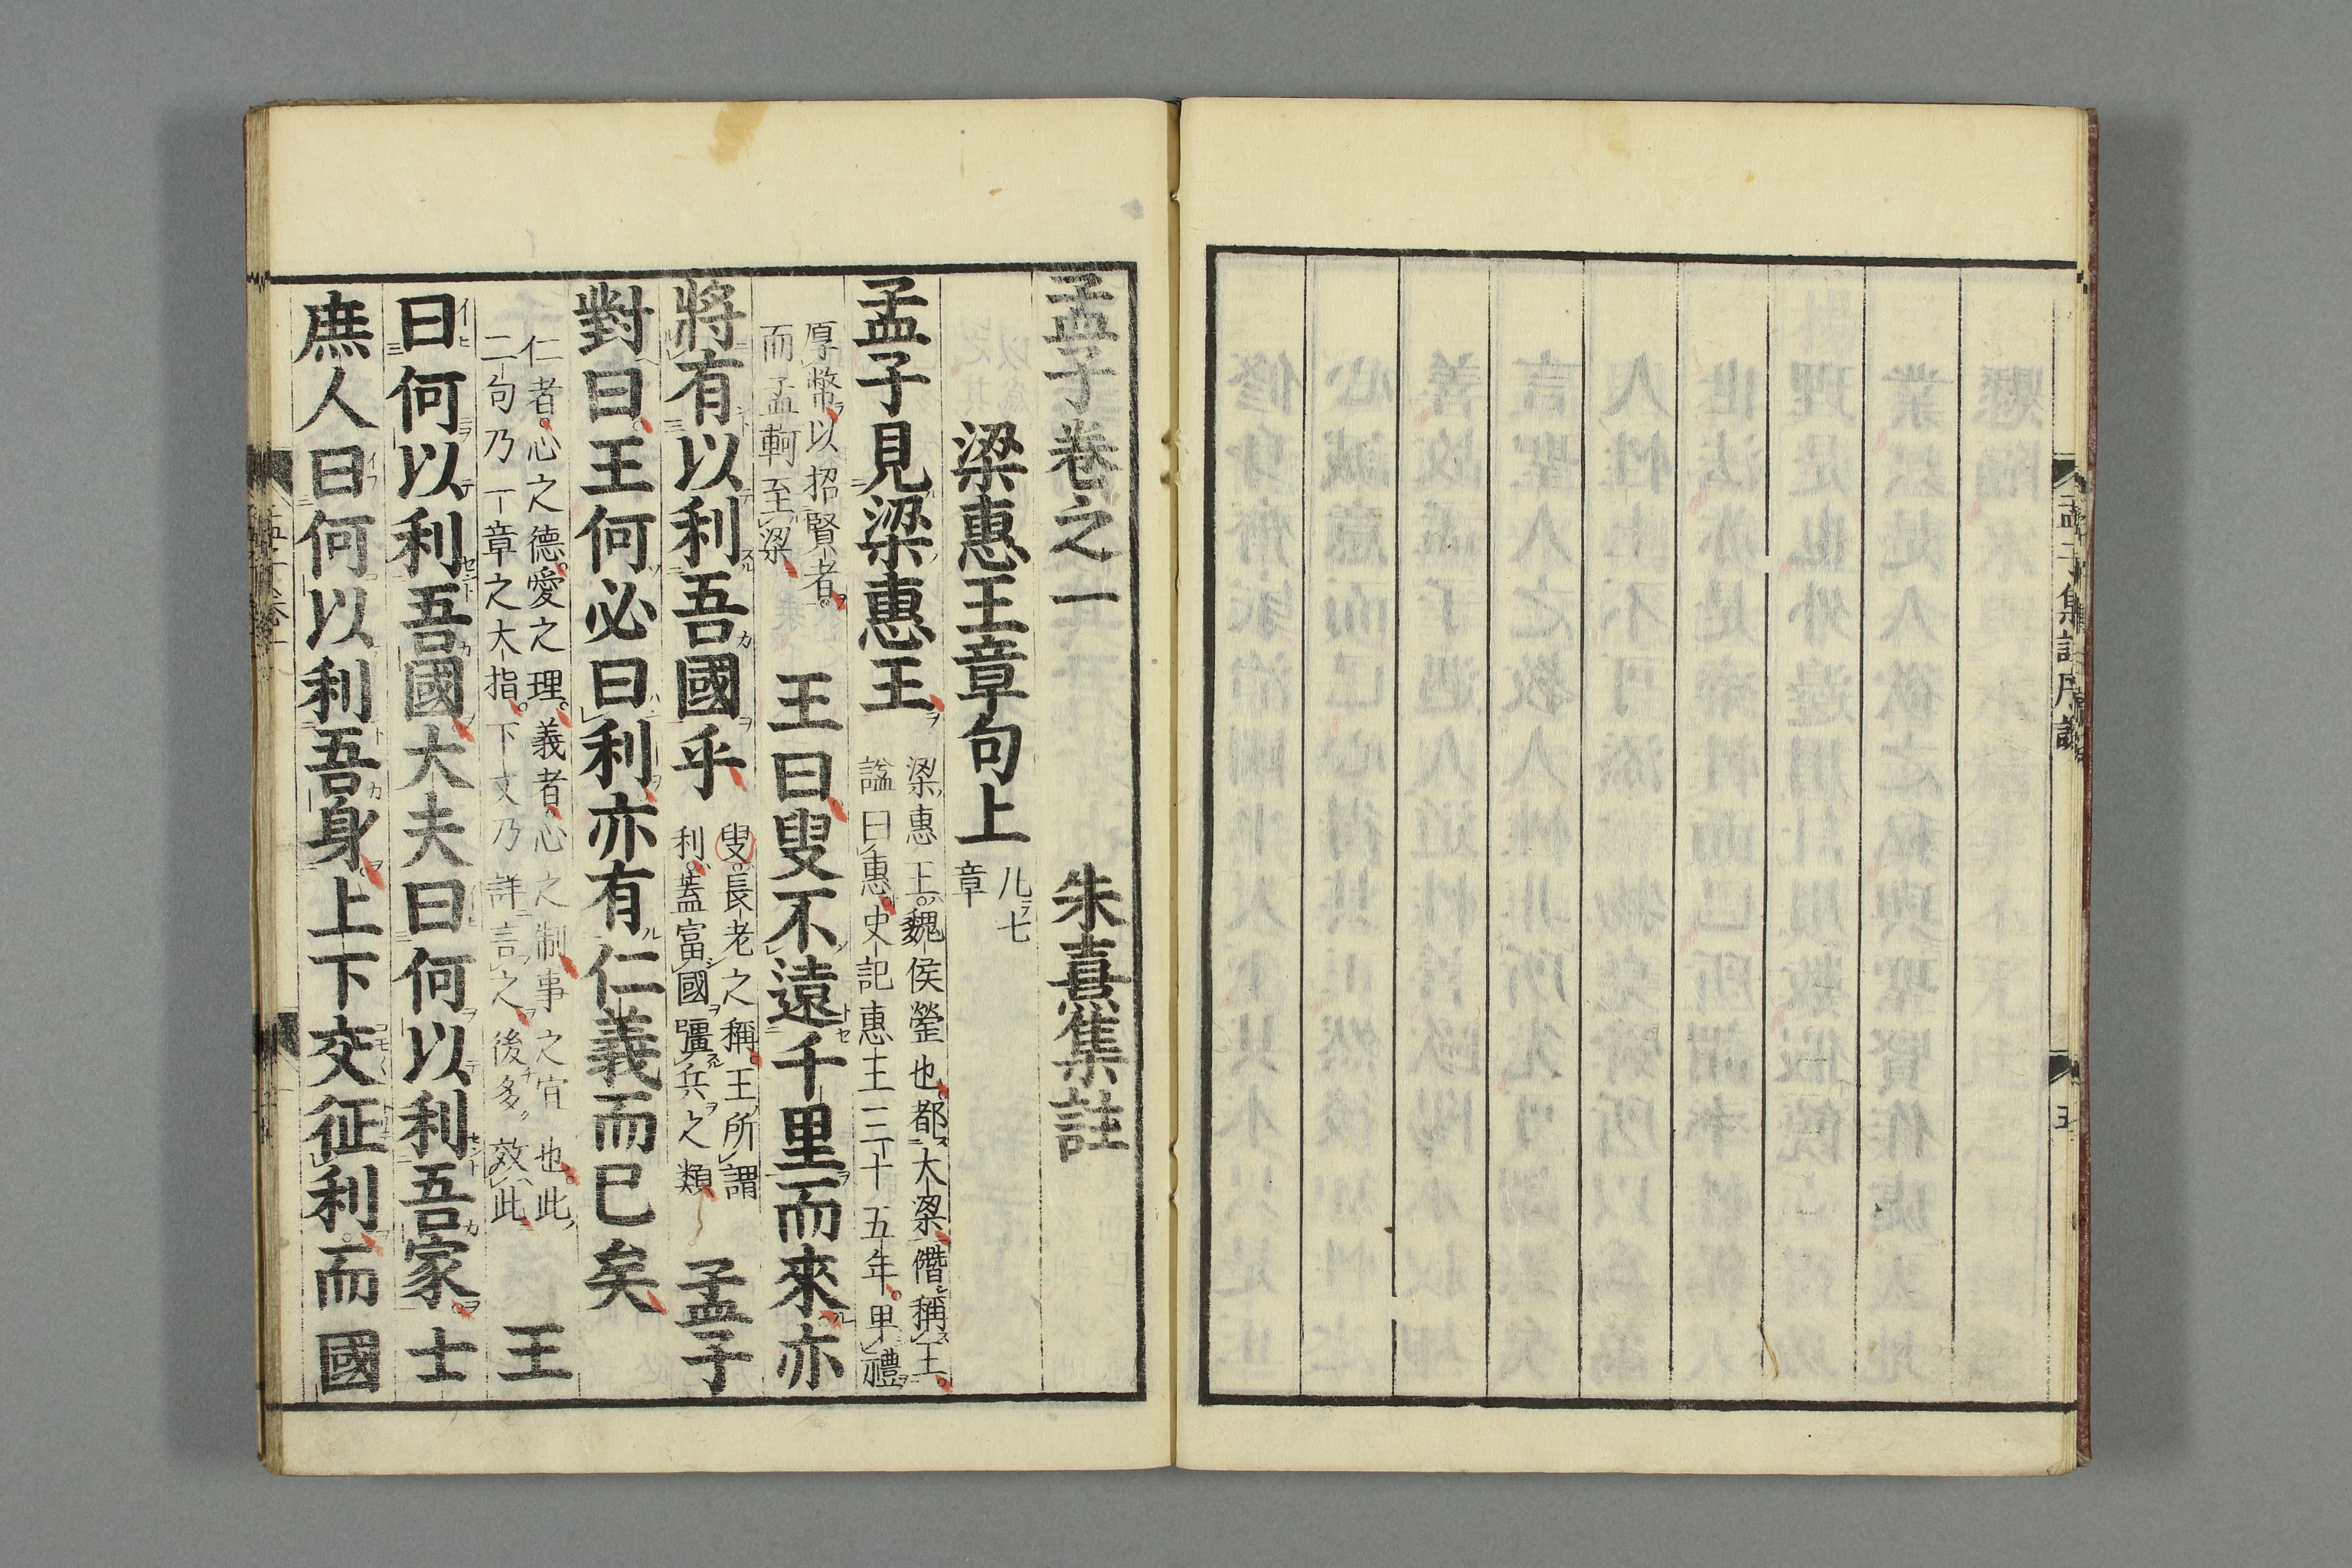 孟子集註序說
五
孟子卷之一
朱熹集註
梁惠王章句上
凡七
章
孟子見梁惠王
梁惠王。魏侯罃也。都大梁僭稱王。
諡曰惠。史記惠王三十五年。卑禮
厚幣以招賢者。
而孟軻至梁
王曰叟不遠千里而來亦
將有以利吾國乎
叟。長老之稱。王所謂
利。蓋富國彊兵之類
孟子
對曰。王何必曰利亦有仁義而已矣
仁者。心之德。愛之理。義者。心之制事之宜也。此
二句乃一章之大指。下文乃詳言之後多效此
王
曰何以利吾國大夫曰何以利吾家士
庶人曰何以利吾身。上下交征利。而國